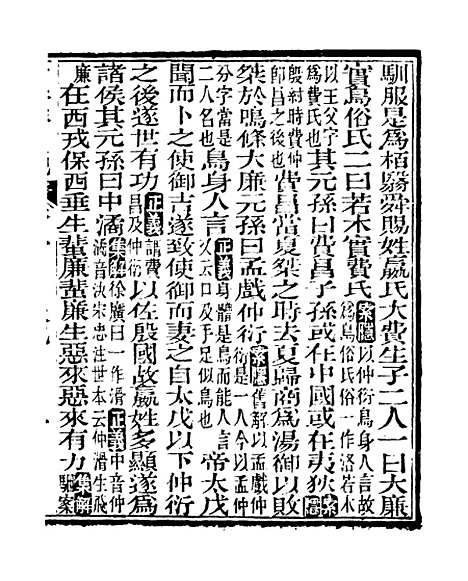 馴服是爲栢翳舜賜姓嬴氏大費生子二人一曰大廉
實鳥俗氏二曰若木實費氏索隱以仲衍鳥身人言故爲鳥俗氏俗一作浴若木
以王父字爲費氏也其元孫曰費昌子孫或在中國或在夷狄索隱
殷紂時費仲卽昌之後也費昌當夏桀之時去夏歸商爲湯御以敗
桀於鳴條大廉元孫曰孟戲仲衍索隱舊解以孟戲仲衍是一人今以孟仲
分字當是二人名也鳥身人言正義身體是鳥而能人言又云口及手足似鳥也帝太戊
聞而卜之使御吉遂致使御而妻之自太戊以下仲衍
之後遂世有功正義謂費昌及仲衍以佐殷國故嬴姓多顯遂爲
諸侯其元孫曰中潏集解徐廣曰一作滑正義中音仲潏音決宋忠注世本云仲滑生飛
廉在西戎保西垂生蜚廉蜚廉生惡來惡來有力集解駰案